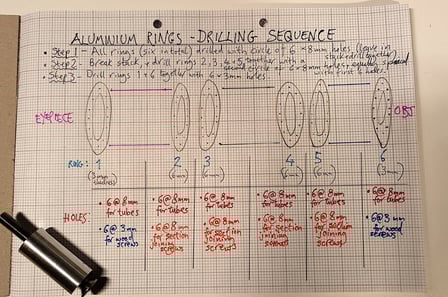 ALUMINIUM RINGS - DRILLING SEQUENCE
• Step 1 - All rings (six in total) drilled with circle of 6 × 8mm holes (leave in
stack + drill together)
• Step 2 - Break stack, + drill rings 2, 3, 4 + 5 together with a
second circle of 6 × 8mm holes, equally spaced
with first 6 holes.
• Step 3 - Drill rings 1 + 6 together with 6 × 3mm holes.
EYEPIECE
OBJ
RING: 1 2 3 4 5 6
(3mm (6mm) (6mm) (3mm)
HOLES:
• 6 @ 8mm for tubes
• 6 @ 3mm for wood screws
• 6 @ 8mm for tubes
• 6 @ 8mm for section joining screws
• 6 @ 8mm for tubes
• 6 @ 8mm for section joining screws
• 6 @ 8mm for tubes
• 6 @ 8mm for section joining screws
• 6 @ 8mm for tubes
• 6 @ 8mm for section joining screws
• 6 @ 8mm for tubes
• 6 @ 3mm for wood screws